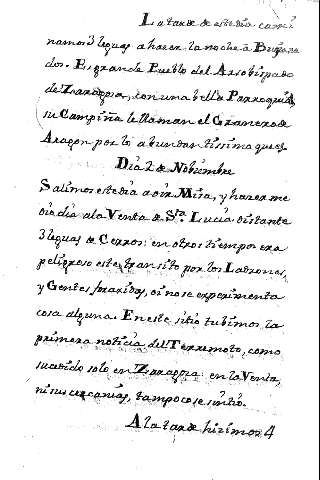 La tarde de este dia cami
namos 3 leguas a hacer la noche à Bujara
dos. Es grande Pueblo del Arzobispado
de Zaragoza, con una bella Parroquia,
su Campiña le llaman el Granero de
Aragon por lo abundantissima que es
Dia 2 de Nobiembre
Salimos este dia a oir Misa, y hacer me
dio dia a la Venta de Sta. Lucia distante
3 leguas de en otros tiempos era
peligroso este transito por los Ladrones,
y Gentes foraxidas, oi no se experimenta
cosa alguna. En este sitio tubimos la
primera noticia del Terremoto, como
sucedido solo en Zaragoza en la Venta,
ni sus cercanias, tampoco se sintio.
A la tarde hizimos 4